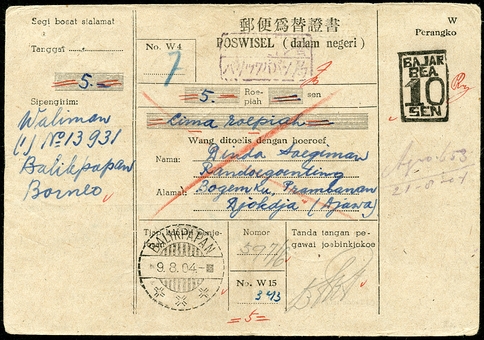 Segi boeat sialamat
Tanggal
=5.=
Sipengirim:
Waliman
(1) № 13931
Balikpapan
Borneo
No. W 4
7
郵便爲替證書
POSWISEL (dalam negeri)
=5.= Roepiah = sen
=Lima roepiah=
Wang ditoelis dengan hoeroef
Nama: Dinda Saegiman
Randoegoenting
Alamat: Bogem Ku. Prambanan
Djokdja (Djawa)
W
Perangko
BAJAR
BEA
10
SEN
BALIKPAPAN
9.8.04
Nomor
5976
No. W 15
343
=5=
Tanda tangan pegawai josbinkjokoe